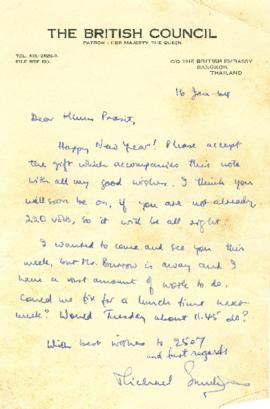 THE BRITISH COUNCIL
PATRON: HER MAJESTY THE QUEEN
C/O THE BRITISH EMBASSY
BANGKOK
THAILAND
FILE REF NO.
16 Jan 64
Dear Khun Prasit,
Happy New Year! Please accept
the gift which accompanies this note
with all my good wishes. I think you
will soon be on, if you are not already
220 volts, so it will be all right
I wanted to come and see you this
week, but Mr. Burrow is away and I
have a vast amount of work to do.
Could we fix for a lunch time next
week? Would Tuesday about 11.45 do?
With best wishes to 2507
and best regards
Michael